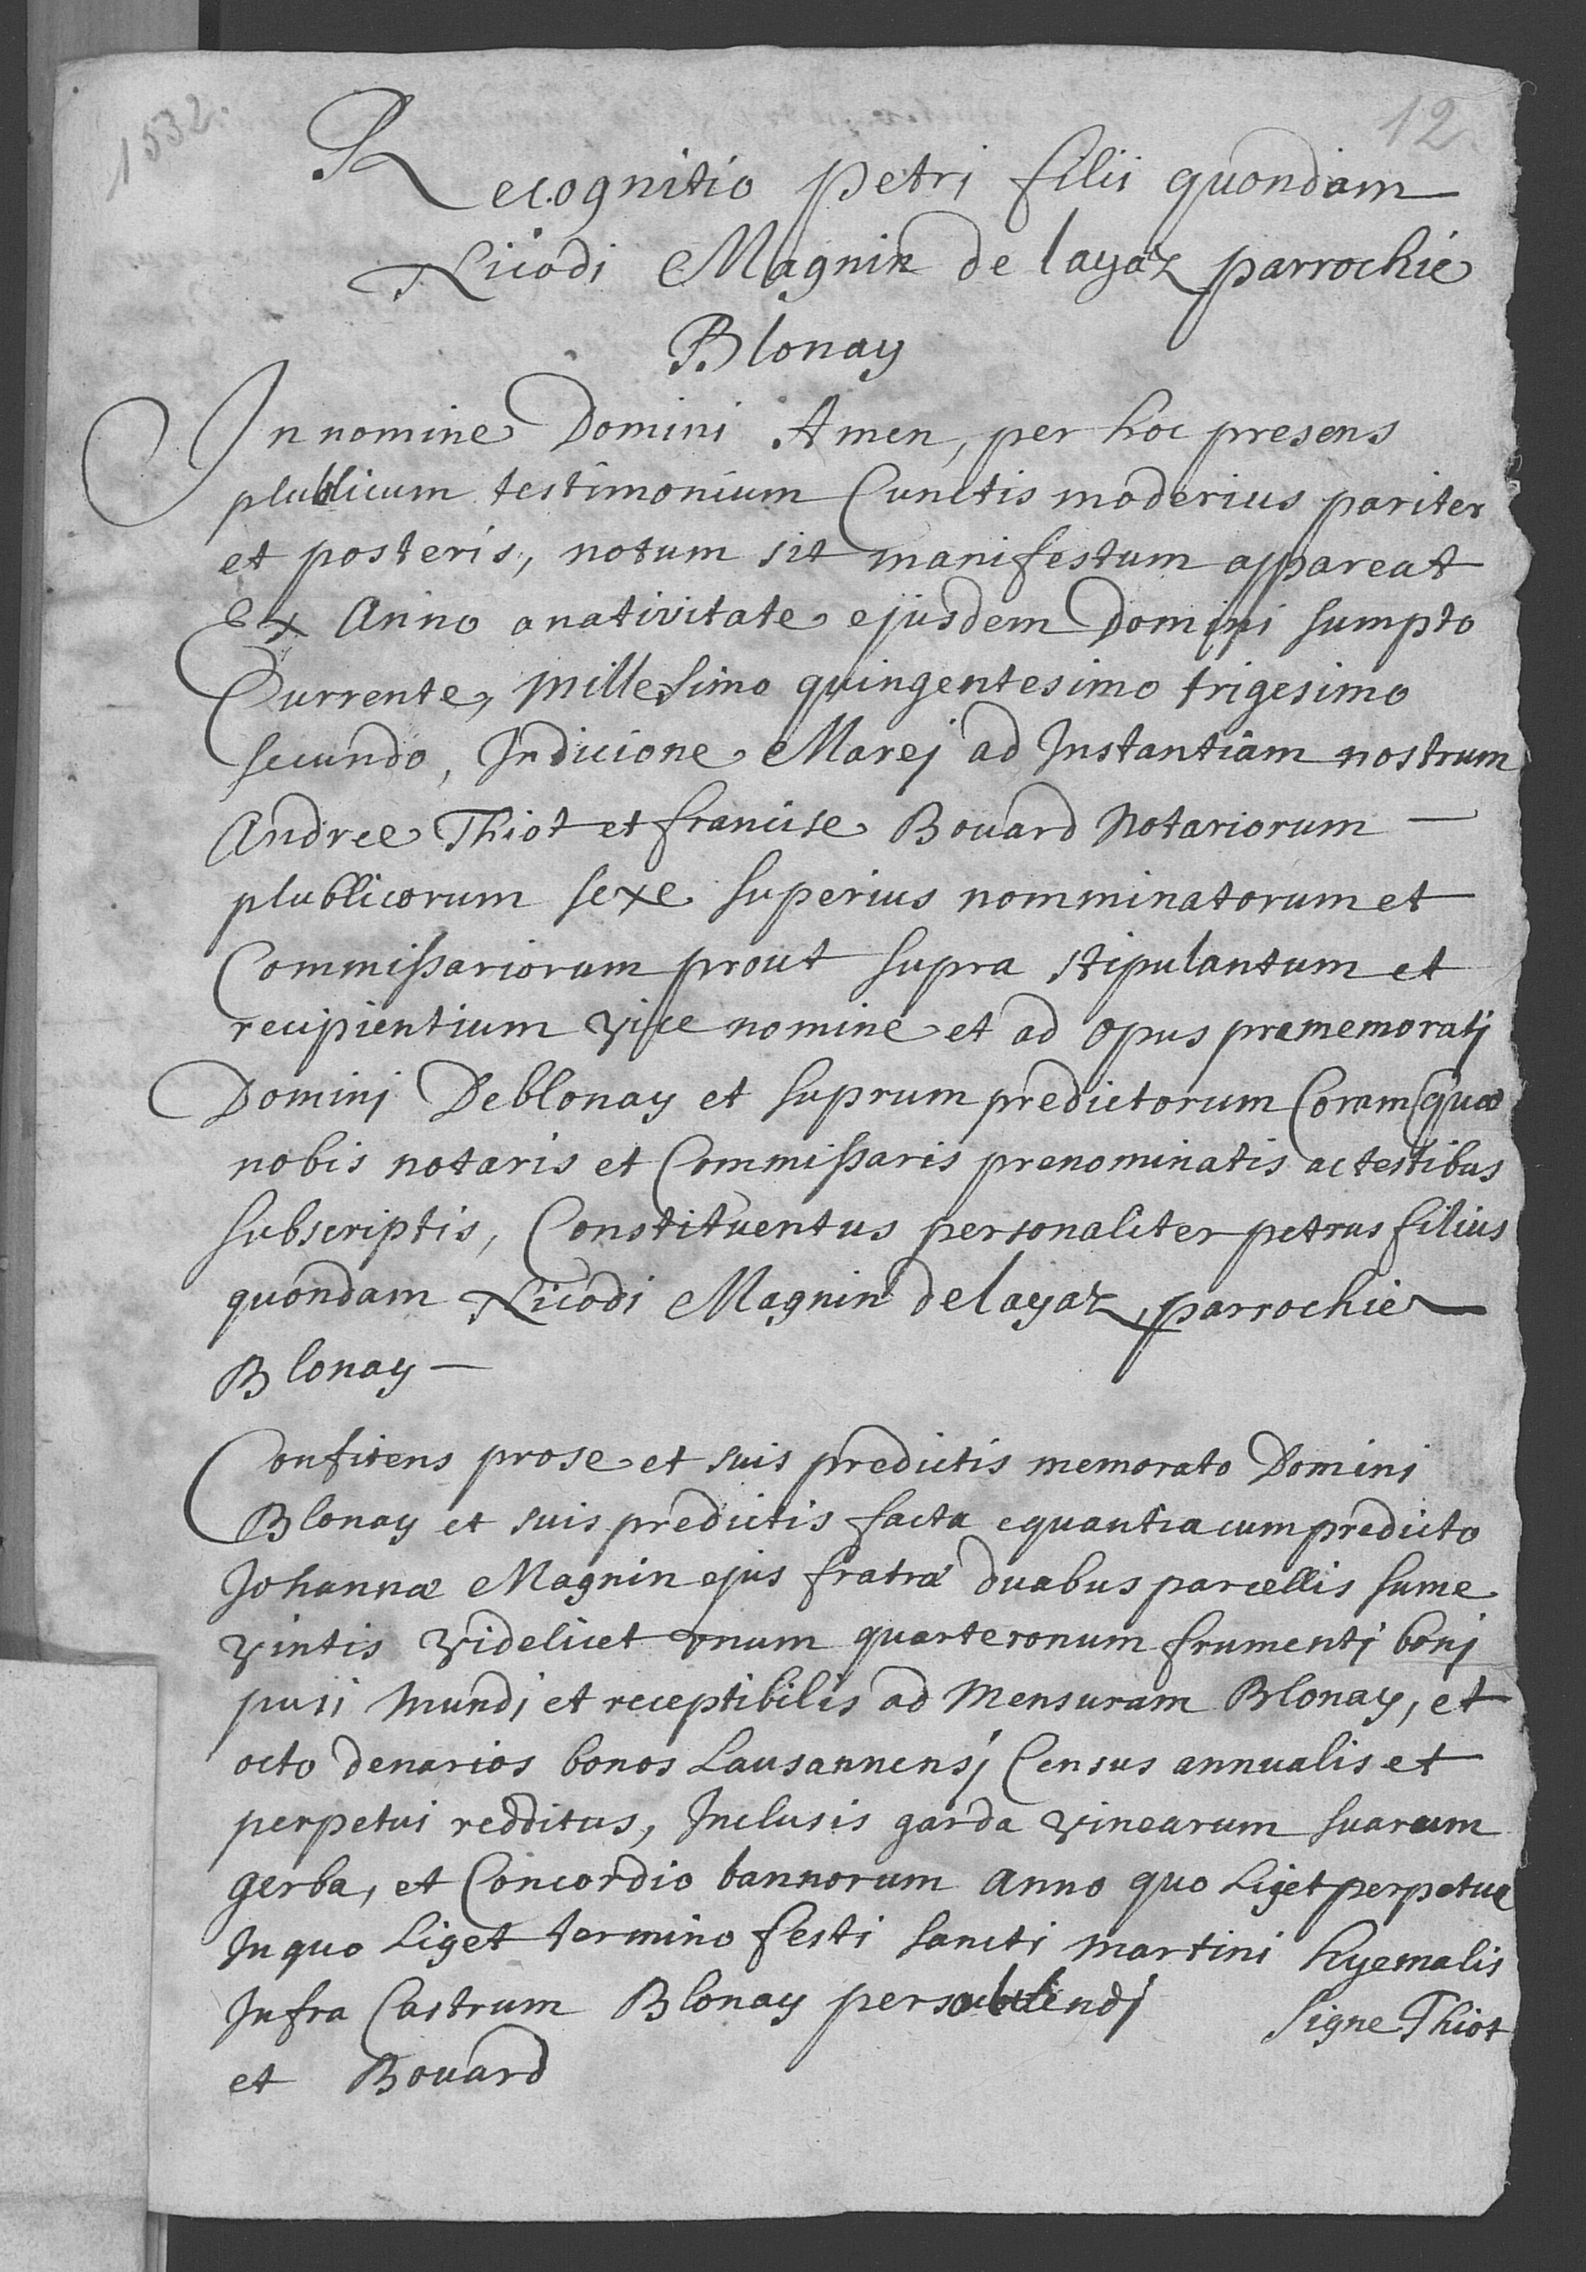 1532.
12
Recognitio petri filii quondam
Nicodi Magnin de layaz parrochie
Blonay
In nomine Domini Amen, per hoc presens
plublicum testimonium Cunctis moderius pariter
et posteris, notum sit manifestum appareat
Ex Anno a nativitate ejusdem Domini sumpto
Currente, millesimo quingentesimo trigesimo
secundo, Indicione Marej ad Instantiam nostrum
Andree Thiot et francise Bouard Notariorum —
plubblicorum sexe superius nomminatorum et
Commissariorum prout supra stipulantum et
recipientium vice nomine et ad opus prememoratj
Dominj Deblonay et suprum predictorum Coram quod
nobis notaris et Commissaris prenominatis ac testibus
subscriptis, Constituentus personaliter petrus filius
quondam Nicodi Magnin de layaz, parrochie
Blonay —
Confitens prose et suis predictis memorato Domini
Blonay et suis predictis facta equantia cum predicto
Johannæ Magnin ejus fratræ duabus parcellis sume
vintis videlicet vnum quarteronum frumentj bonj
puri mundj et receptibilis ad mensuram Blonay, et
octo denarios bonos Lausannensj Census annualis et
perpetui redditus, Inclusis garda vinearum suarum
gerba, et Concordio bannorum anno quo Liget perpetue
In quo Liget termino festi sancti martini hyemalis
Infra Castrum Blonay persolvendj signe Thiot
et Bouard